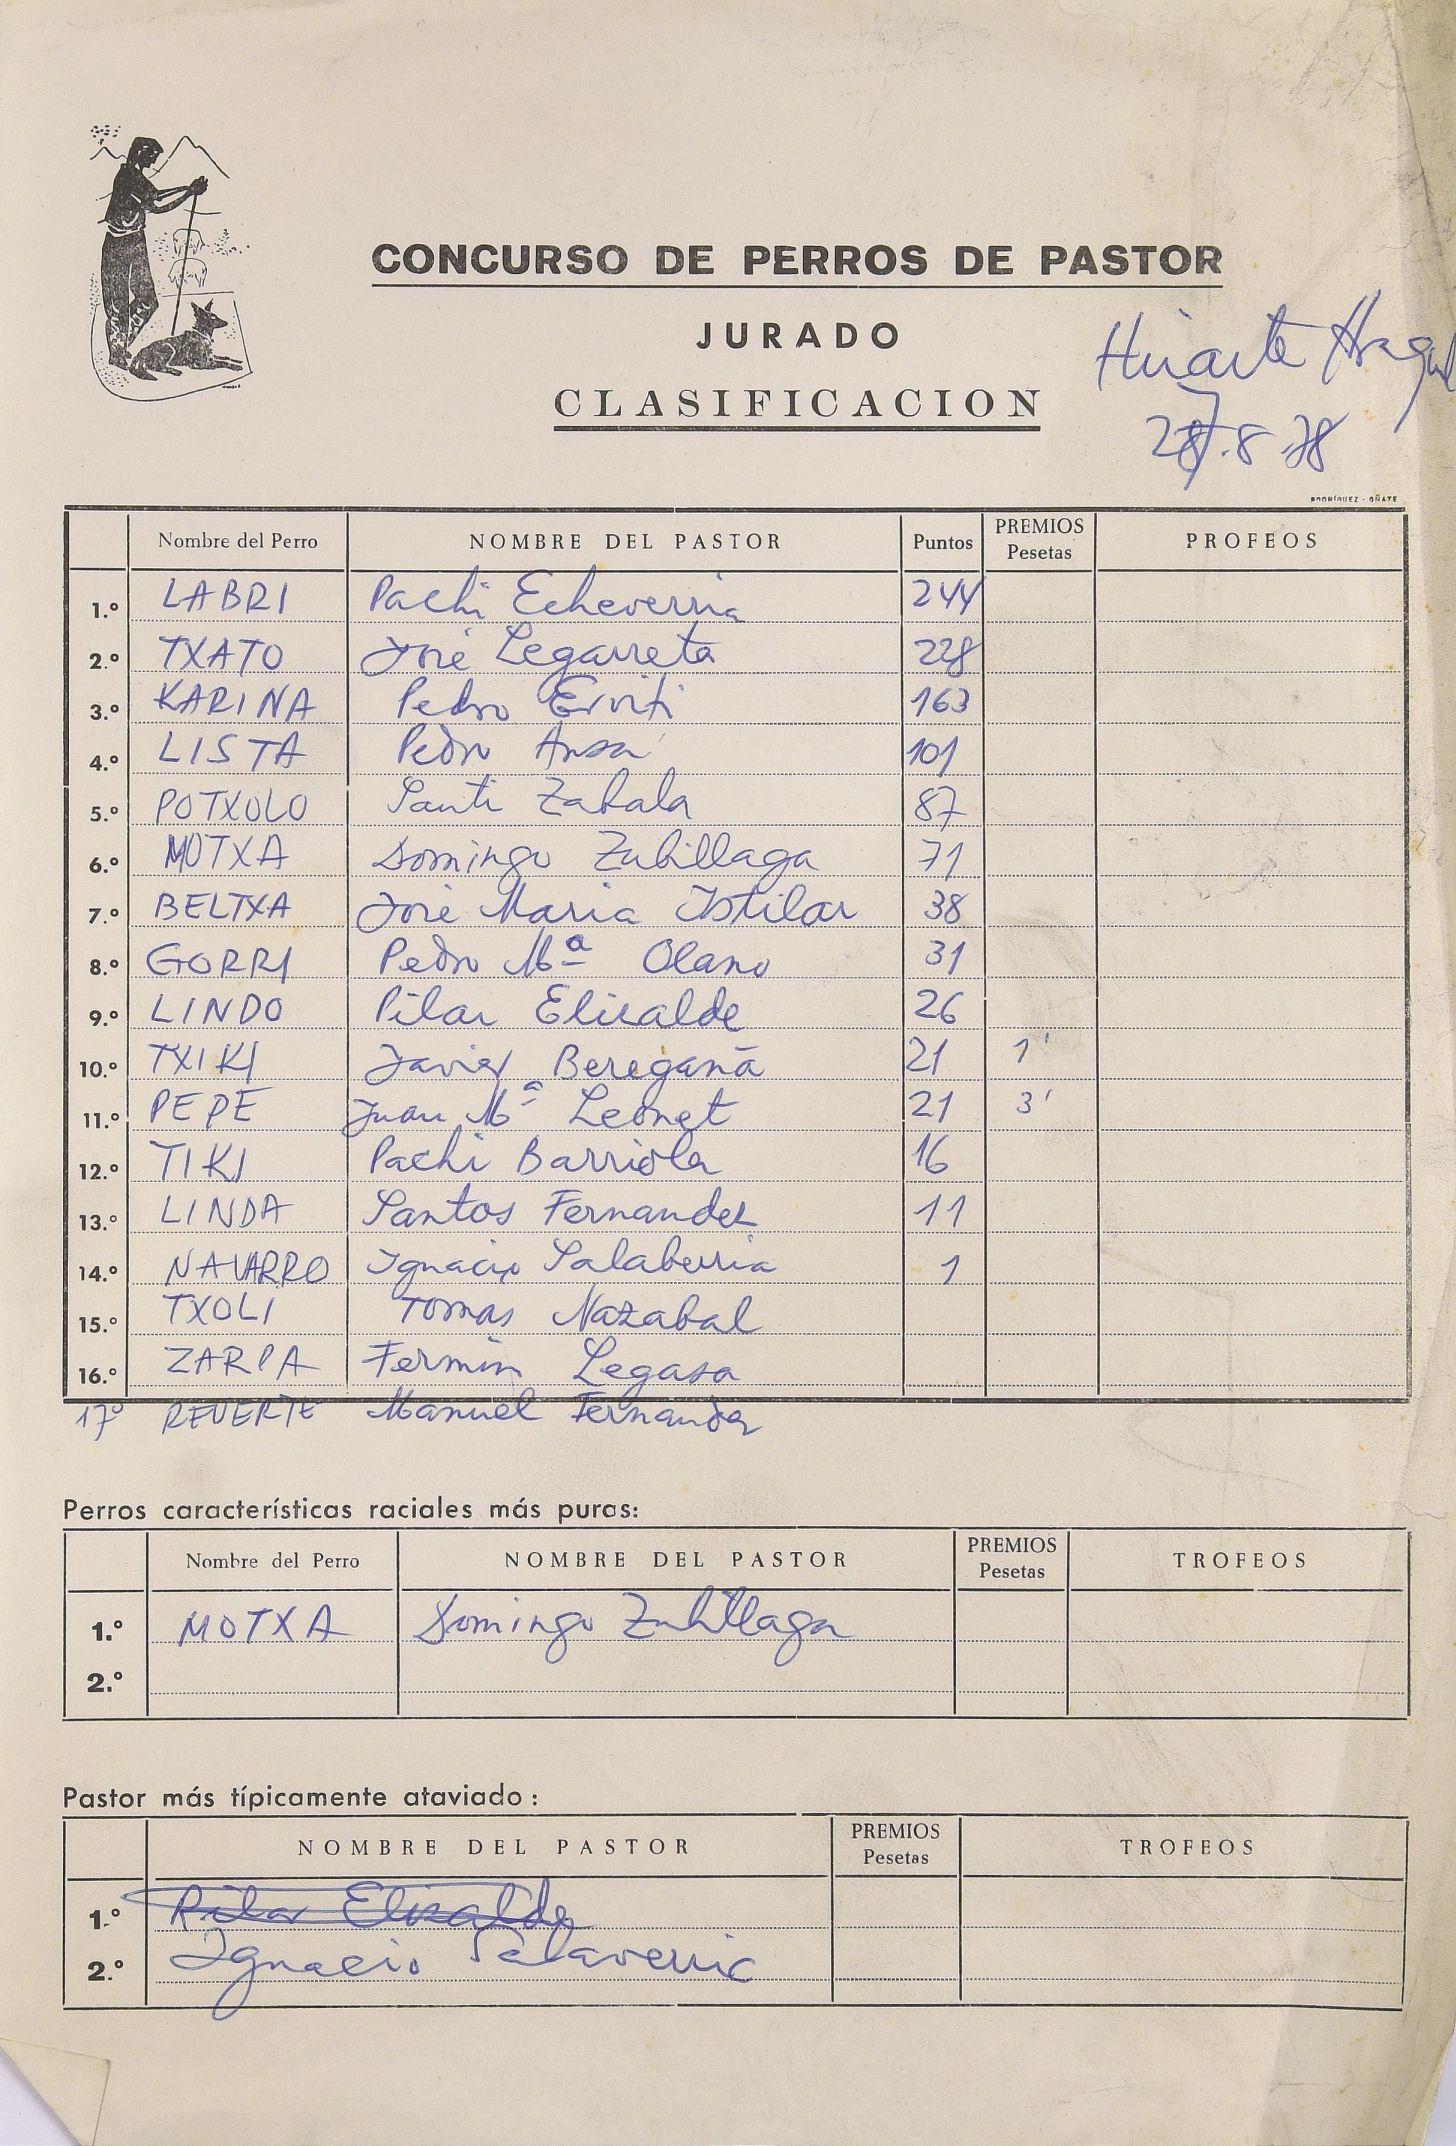 CONCURSO DE PERROS DE PASTOR
JURADO
Huarte
CLASIFICACION
27.8.78
RODRÍGUEZ - OÑATE
Nombre del Perro NOMBRE DEL PASTOR Puntos PREMIOS Pesetas PROFEOS
1.º LABRI Pachi Echeverria 244
2.º TXATO José Legarreta 228
3.º KARINA Pedro Erviti 163
4.º LISTA Pedro Ansa 101
5.º POTXOLO Santi Zabala 87
6.º MOTXA Domingo Zubillaga 71
7.º BELTXA José Maria Istilar 38
8.º GORRI Pedro Mª Olano 31
9.º LINDO Pilar Elizalde 26
10.º TXIKI Javier Beregaña 21 1'
11.º PEPE Juan Mª Leonet 21 3'
12.º TIKI Pachi Barriola 16
13.º LINDA Santos Fernandez 11
14.º NAVARRO Ignacio Salaberria 1
15.º TXOLI Tomas Nazabal
16.º ZARPA Fermin Legasa
17º REVERTE Manuel Fernandez
Perros características raciales más puras:
Nombre del Perro NOMBRE DEL PASTOR PREMIOS Pesetas TROFEOS
1.º MOTXA Domingo Zubillaga
2.º
Pastor más típicamente ataviado :
NOMBRE DEL PASTOR PREMIOS Pesetas TROFEOS
1.º Pilar Elizalde
2.º Ignacio Salaverria